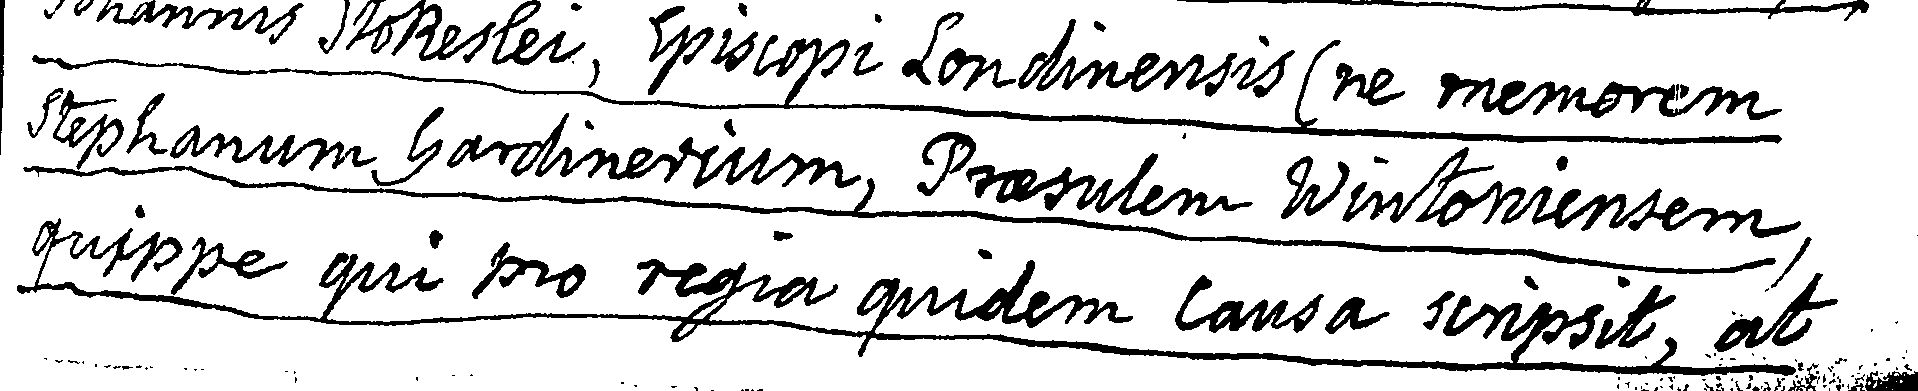 Johannis Stokeslei, Episcopi Londinensis (ne memorem
Stephanum Gardinerium, Præsulem Wintoniensem,
quippe qui pro regia quidem causa scripsit, at